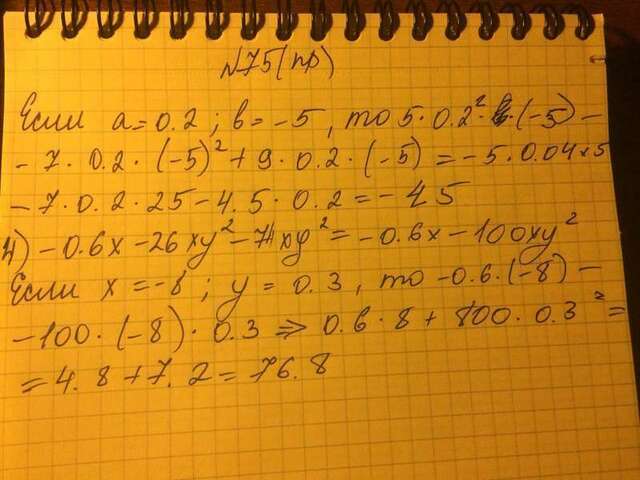 №75(пр)
Если a=0.2; b=-5, то 5·0.2²·(-5)-
-7·0.2·(-5)²+9·0.2·(-5)=-5·0.04×5
-7·0.2·25-4.5·0.2=-45
4) -0.6x-26xy²-74xy²=-0.6x-100xy²
Если x=-8; y=0.3, то -0.6·(-8)-
-100·(-8)·0.3⇒0.6·8+800·0.3²=
=4.8+7.2=76.8